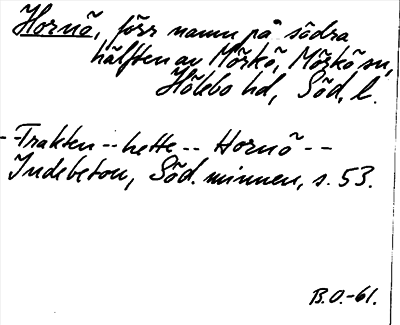 Hornö, förr namn på södra
hälften av Mörkö, Mörkö sn,
Hölebo hd, Söd. l.
--Trakten -- hette -- Hornö --
Indebetou, Söd. minnen, s. 53.
B.O.-61.